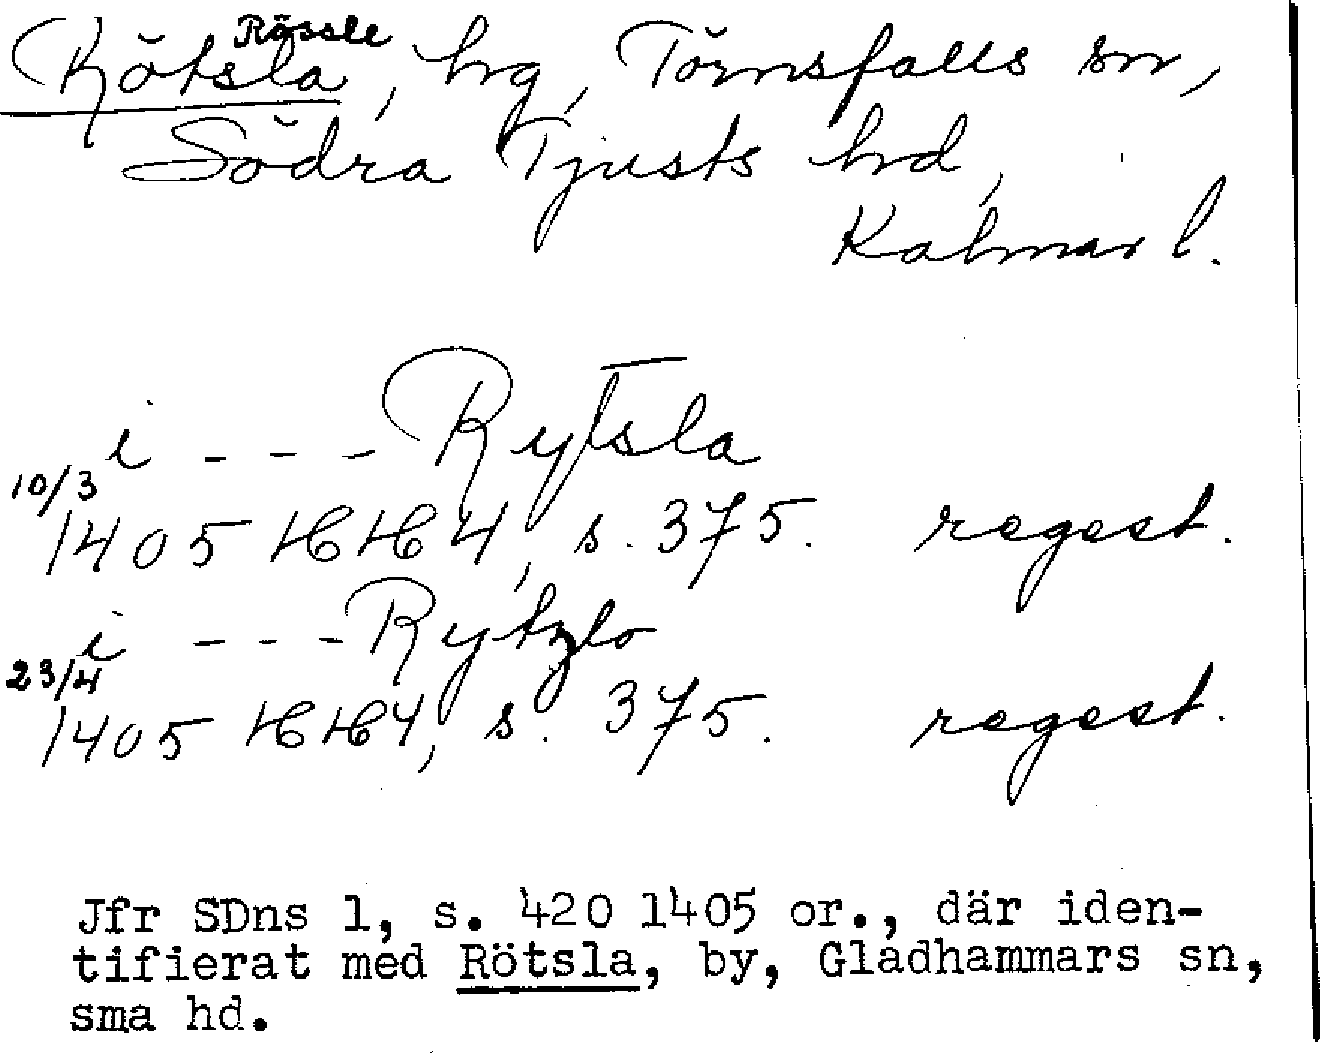 Rössle
Rötsla, hg, Törnsfalls sn,
Södra Tjusts hd,
Kalmar l.
i - - - Rytsla
10/3
1405 HH 4, s. 375. regest.
i - - - Rytzlo
23/4
1405 HH 4, s. 375. regest.
Jfr SDns 1, s. 420 1405 or., där iden-
tifierat med Rötsla, by, Gladhammars sn,
sma hd.